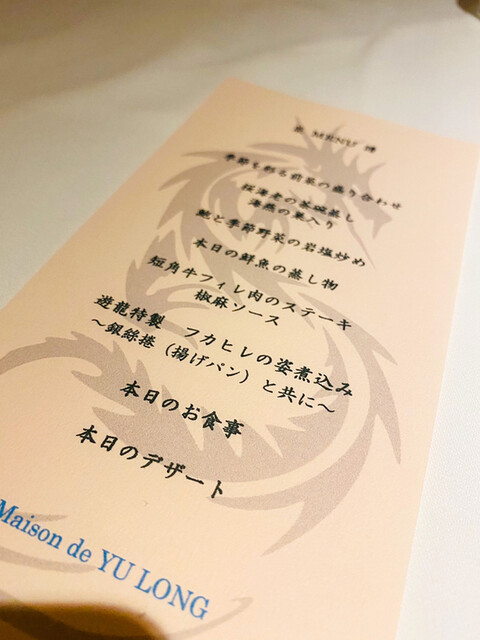 MENU
季節を彩る前菜の盛り合わせ
桜海老の茶碗蒸し
海燕の巣入り
鮑と季節野菜の岩塩炒め
本日の鮮魚の蒸し物
短角牛フィレ肉のステーキ
椒麻ソース
遊龍特製 フカヒレの姿煮込み
～銀絲捲（揚げパン）と共に～
本日のお食事
本日のデザート
Maison de YU LONG